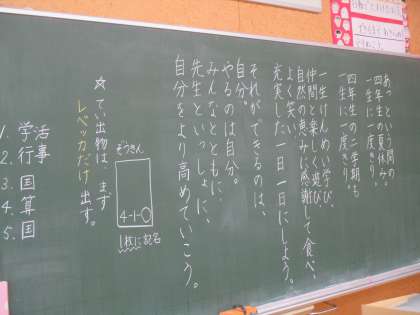 あっという間の
四年生の夏休み。
一生に一度きり。
四年生の二学期も
一生に一度きり。
一生けんめい学び、
仲間と楽しく遊び
自然の恵みに感謝して食べ、
よく笑い
充実した一日一日にしよう。
それができるのは、
自分。
やるのは自分。
みんなとともに、
先生といっしょに、
自分をより高めていこう。
ぞうきん
4-1-〇
1枚に記名
☆てい出物は、まず
レベッカだけ 出す。
1. 学活
2. 行事
3. 国
4. 算
5. 国